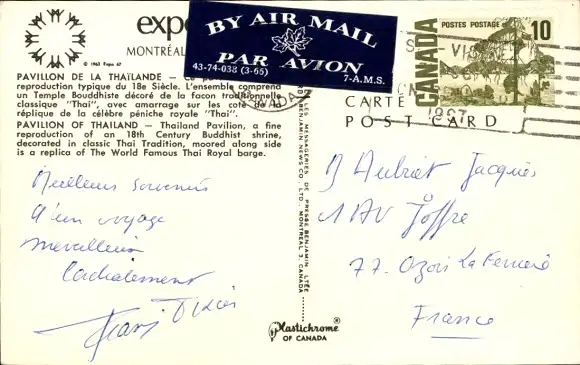 expo
© 1963 Expo 67
MONTRÉAL
BY AIR MAIL
PAR AVION
43-74-038 (3-65)
7-A.M.S.
CANADA
POSTES POSTAGE
10
1967
PAVILLON DE LA THAÏLANDE —
reproduction typique du 18e Siècle. L'ensemble comprend
un Temple Bouddhiste décoré de la facon traditionnelle
classique "Thai", avec amarrage sur les coté de la
réplique de la célèbre péniche royale "Thai".
PAVILION OF THAILAND — Thailand Pavilion, a fine
reproduction of an 18th Century Buddhist shrine,
decorated in classic Thai Tradition, moored along side
is a replica of The World Famous Thai Royal barge.
LES MESSAGERIES DE PRESSE BENJAMIN LTÉE
BENJAMIN NEWS CO. LTD., MONTREAL 3, CANADA
CARTE
POST CARD
Meilleurs souvenirs
d'un voyage
merveilleux
Cordialement
Aubriet Jacques
1 AV Joffre
77. Ozoir La Ferrière
France
Plastichrome®
OF CANADA